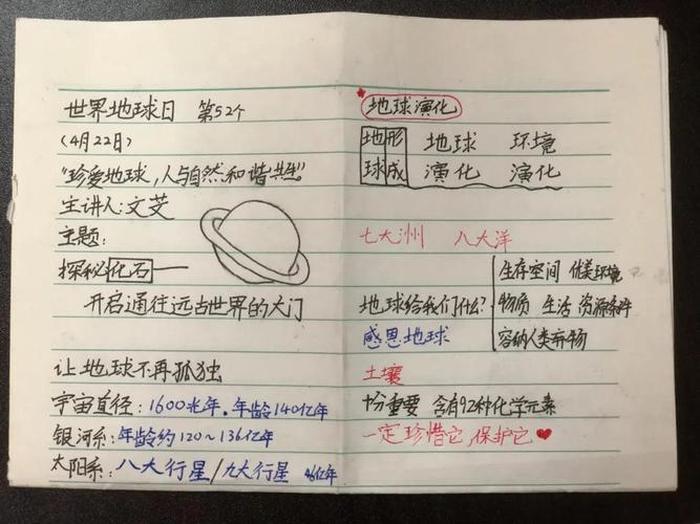 世界地球日 第52个
(4月22日)
"珍爱地球,人与自然和谐共生"
主讲人:文艾
主题:
探秘化石——
开启通往远古世界的大门
让地球不再孤独
宇宙直径:1600光年.年龄140亿年
银河系:年龄约120~136亿年
太阳系:八大行星/九大行星 46亿年
地球演化
地形 地球 环境
球成 演化 演化
七大洲 八大洋
地球给我们什么?
生存空间 优美环境
物质 生活 资源条件
容纳人类弃物
感恩地球
土壤
十分重要 含有92种化学元素
一定珍惜它,保护它